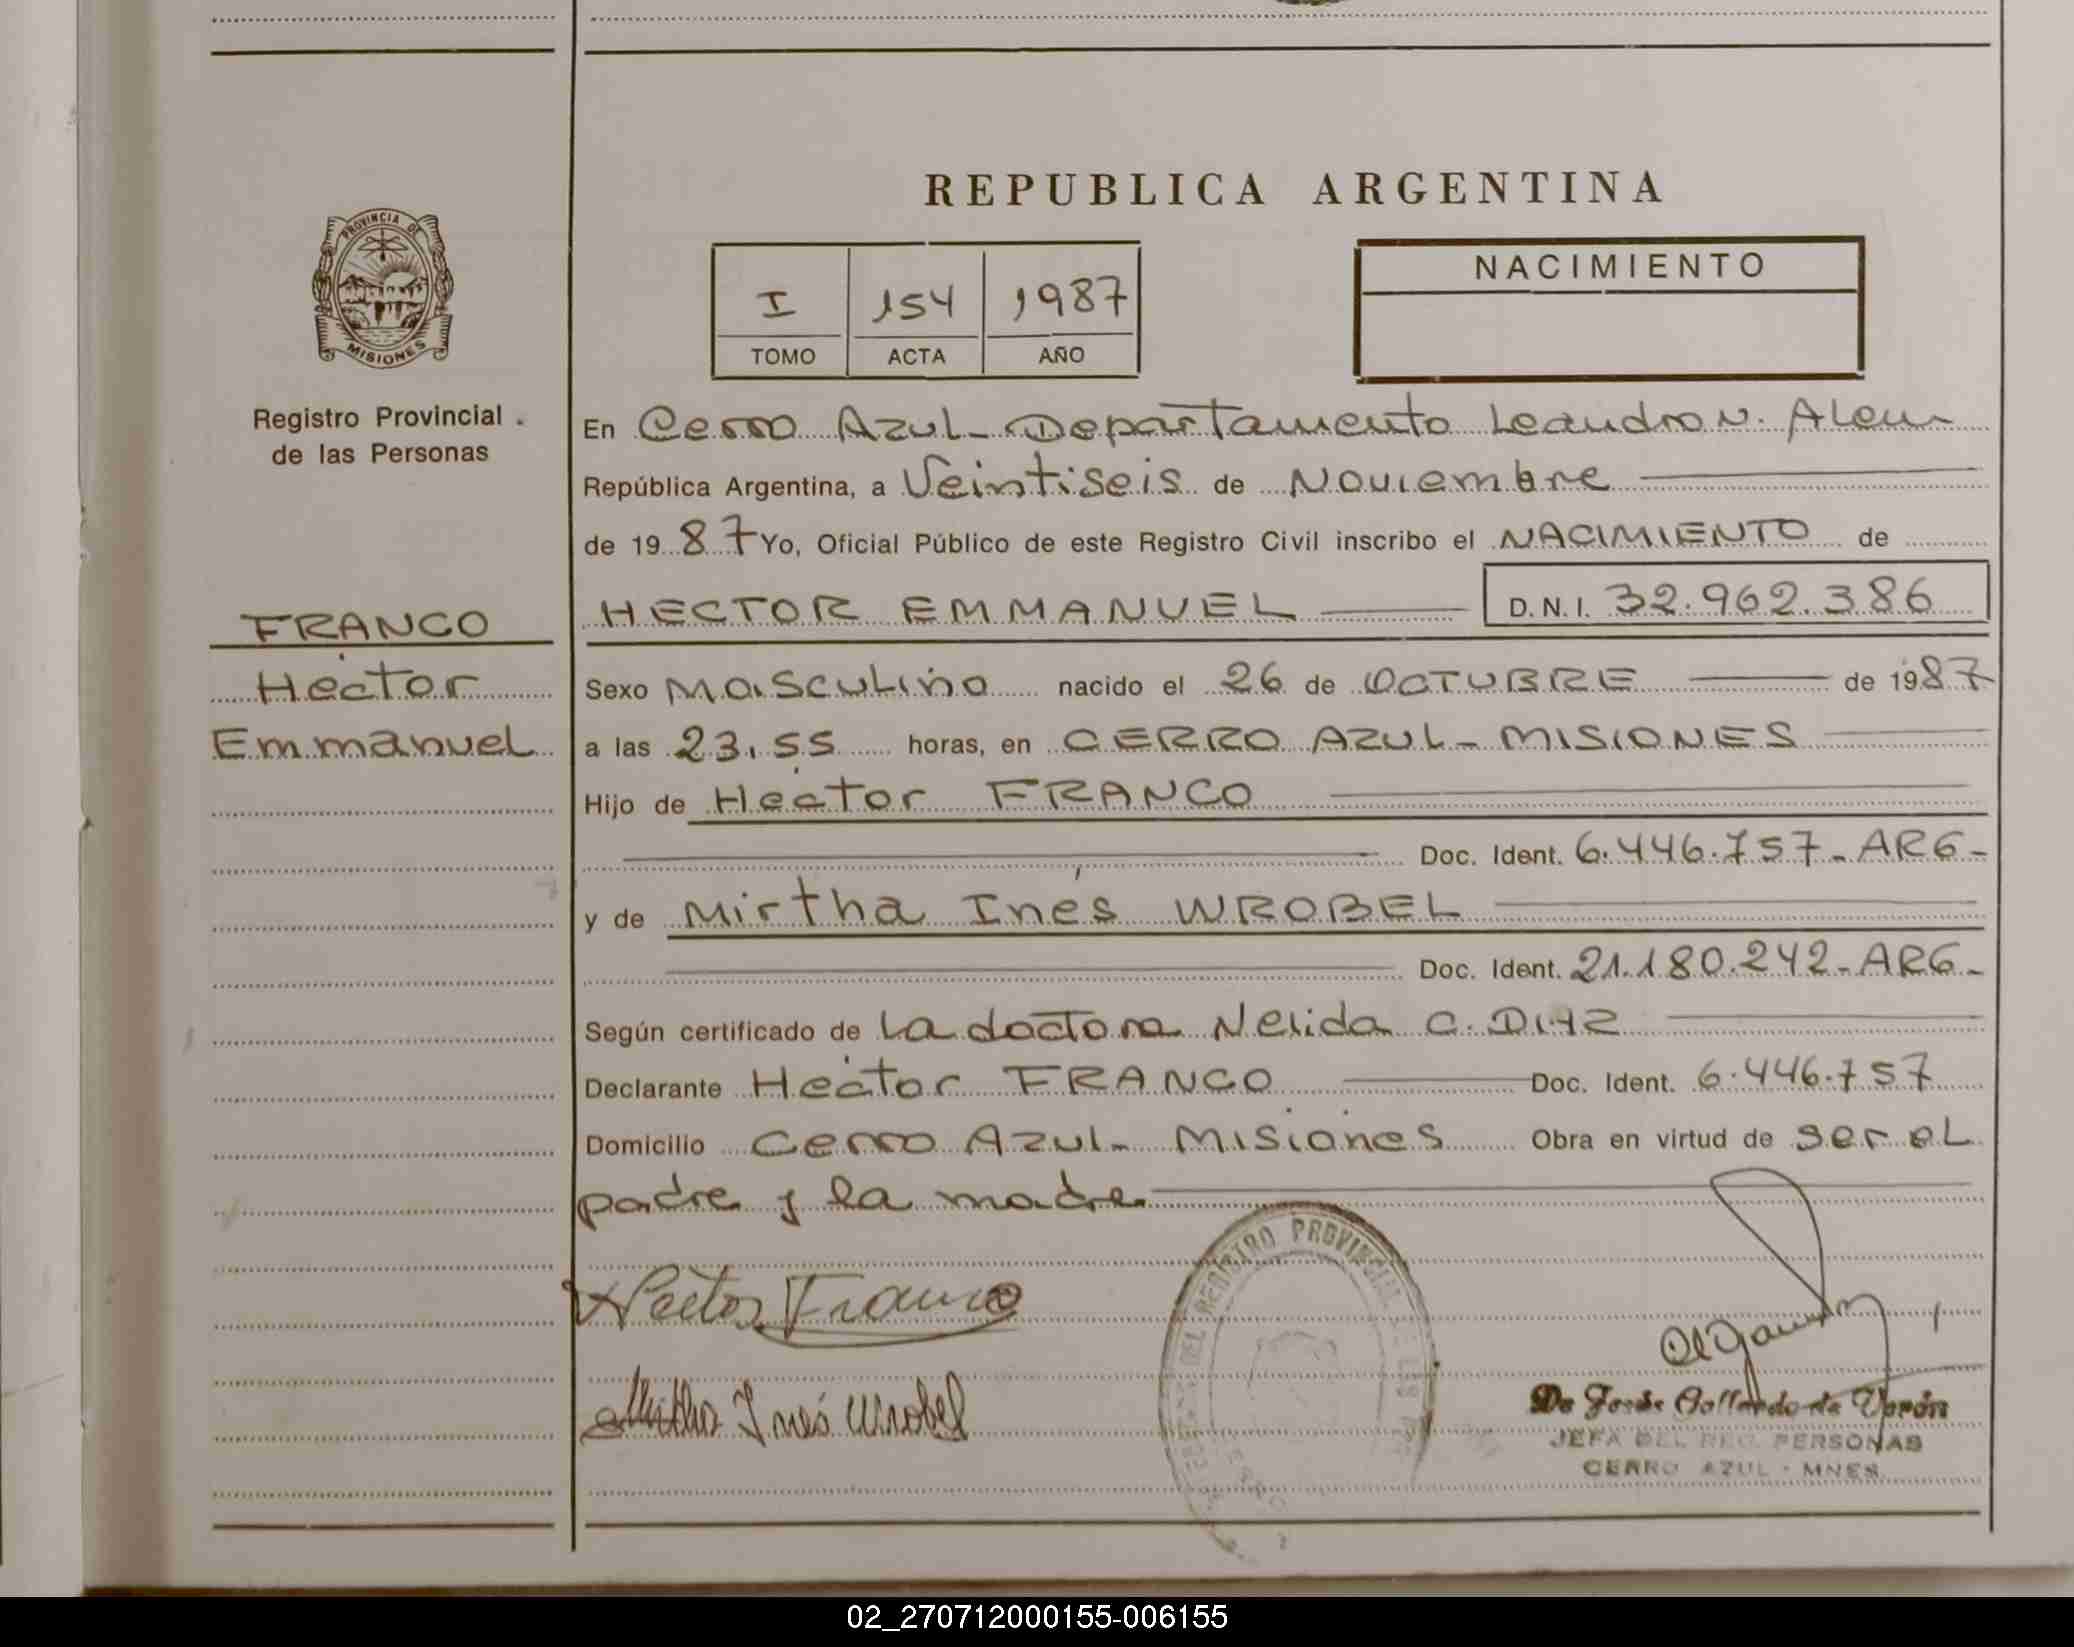 REPUBLICA ARGENTINA
PROVINCIA DE
MISIONES
Registro Provincial
de las Personas
I 154 1987
TOMO ACTA AÑO
NACIMIENTO
En Cerro Azul - Departamento Leandro N. Alem
República Argentina, a Veintiseis de Noviembre
de 1987 Yo, Oficial Público de este Registro Civil inscribo el NACIMIENTO de
HECTOR EMMANUEL D.N.I. 32.962.386
FRANCO
Héctor
Emmanuel
Sexo Masculino nacido el 26 de OCTUBRE de 1987
a las 23.55 horas, en CERRO AZUL - MISIONES
Hijo de Héctor FRANCO
Doc. Ident. 6.446.757 - ARG -
y de Mirtha Inés WROBEL
Doc. Ident. 21.180.242 - ARG -
Según certificado de la doctora Nelida C.
Declarante Héctor FRANCO Doc. Ident. 6.446.757
Domicilio Cerro Azul - Misiones Obra en virtud de ser el
padre y la madre
Hector Franco
Mirtha Inés Wrobel
REGISTRO PROVINCIAL DE LAS
Gallardo de
JEFA DEL REG. PERSONAS
CERRO AZUL - MNES
02_270712000155-006155